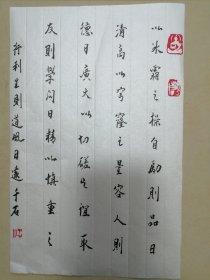 以冰霜之操自励则品日
清高以穹窿之量容人则
德日广大以切磋之谊取
友则学问日精以慎重之
行利生则道风日远